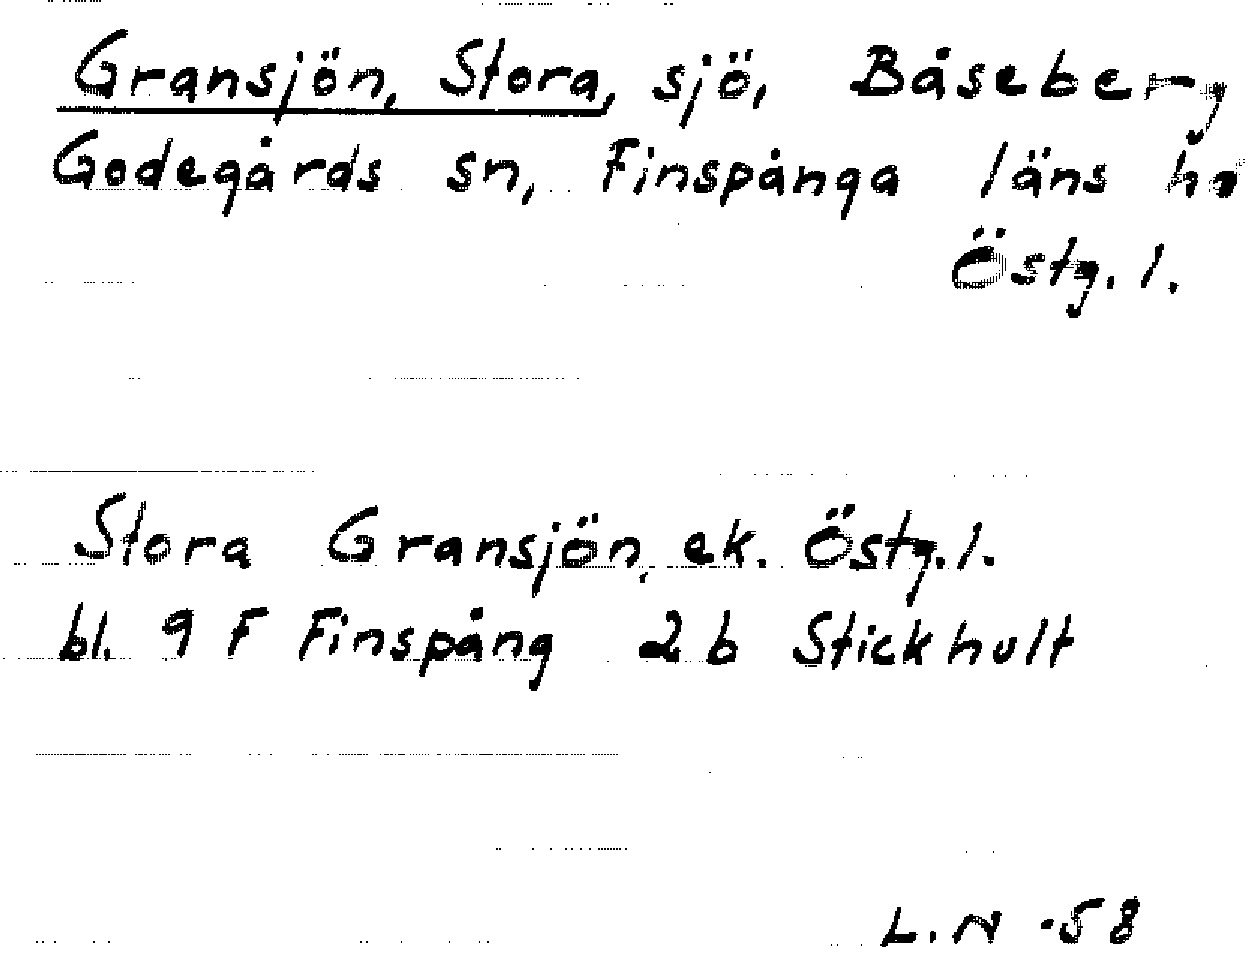 Gransjön, Stora, sjö, Båseberg
Godegårds sn, Finspånga läns
Östg. l.
Stora Gransjön, ek. Östg. l.
bl. 9 F Finspång 2 b Stickhult
L. N -58